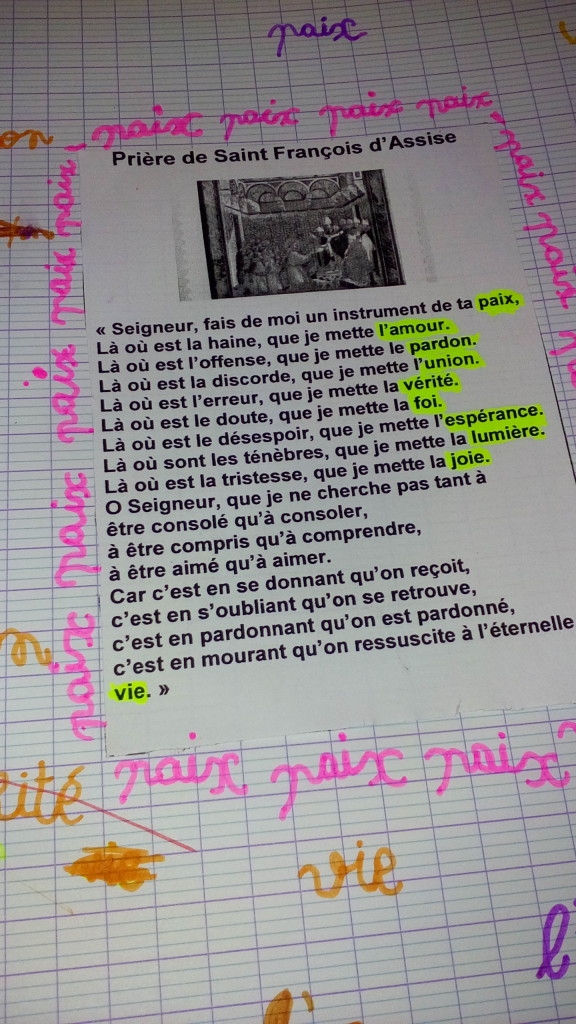 paix
paix paix paix paix
on
Prière de Saint François d'Assise
« Seigneur, fais de moi un instrument de ta paix,
Là où est la haine, que je mette l'amour.
Là où est l'offense, que je mette le pardon.
Là où est la discorde, que je mette l'union.
Là où est l'erreur, que je mette la vérité.
Là où est le doute, que je mette la foi.
Là où est le désespoir, que je mette l'espérance.
Là où sont les ténèbres, que je mette la lumière.
Là où est la tristesse, que je mette la joie.
O Seigneur, que je ne cherche pas tant à
être consolé qu'à consoler,
à être compris qu'à comprendre,
à être aimé qu'à aimer.
Car c'est en se donnant qu'on reçoit,
c'est en s'oubliant qu'on se retrouve,
c'est en pardonnant qu'on est pardonné,
c'est en mourant qu'on ressuscite à l'éternelle
vie. »
paix paix paix paix paix paix
paix paix
paix paix paix
ité
vie
l'
l'